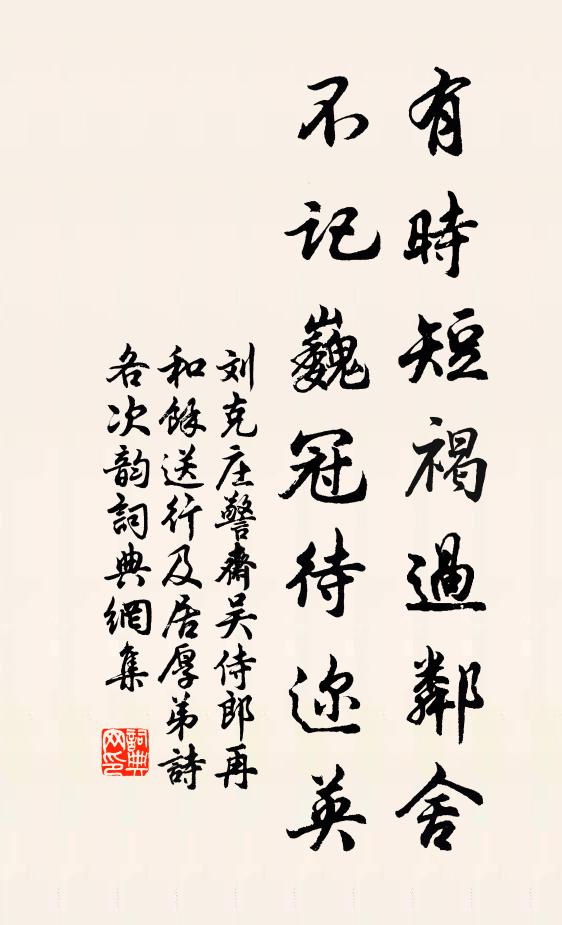 有時短褐過鄰舍
不記巍冠待迩英
刘克庄警齋吴侍郎再
和餘送行及居厚弟詩
各次韵詞典網集
詞典网印